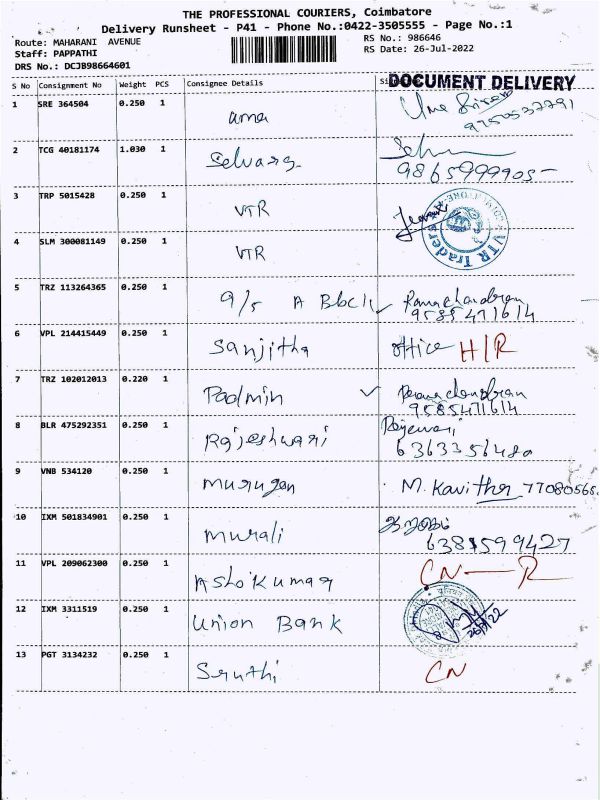 THE PROFESSIONAL COURIERS, Coimbatore
Delivery Runsheet - P41 - Phone No.:0422-3505555 - Page No.:1
Route: MAHARANI AVENUE
RS No.: 986646
Staff: PAPPATHI
RS Date: 26-Jul-2022
DRS No.: DCJB98664601
DOCUMENT DELIVERY
S No Consignment No Weight PCS Consignee Details
1 SRE 364504 0.250 1 uma
2 TCG 40181174 1.030 1 Selvaraj
9865999905
3 TRP 5015428 0.250 1 VTR
VTR Traders
4 SLM 300081149 0.250 1 VTR
5 TRZ 113264365 0.250 1 9/5 A Block Ramachandran
9585471614
6 VPL 214415449 0.250 1 Sanjitha office H/R
7 TRZ 102012013 0.220 1 Padmin Ramachandran
9585471614
8 BLR 475292351 0.250 1 Rajeshwari
9 VNB 534120 0.250 1 murugan M. Kavitha 77080568
10 IXM 501834901 0.250 1 murali
6381599427
11 VPL 209062300 0.250 1 Ashokumar CN - R
12 IXM 3311519 0.250 1 Union Bank
26/7/22
13 PGT 3134232 0.250 1 Sruthi CN